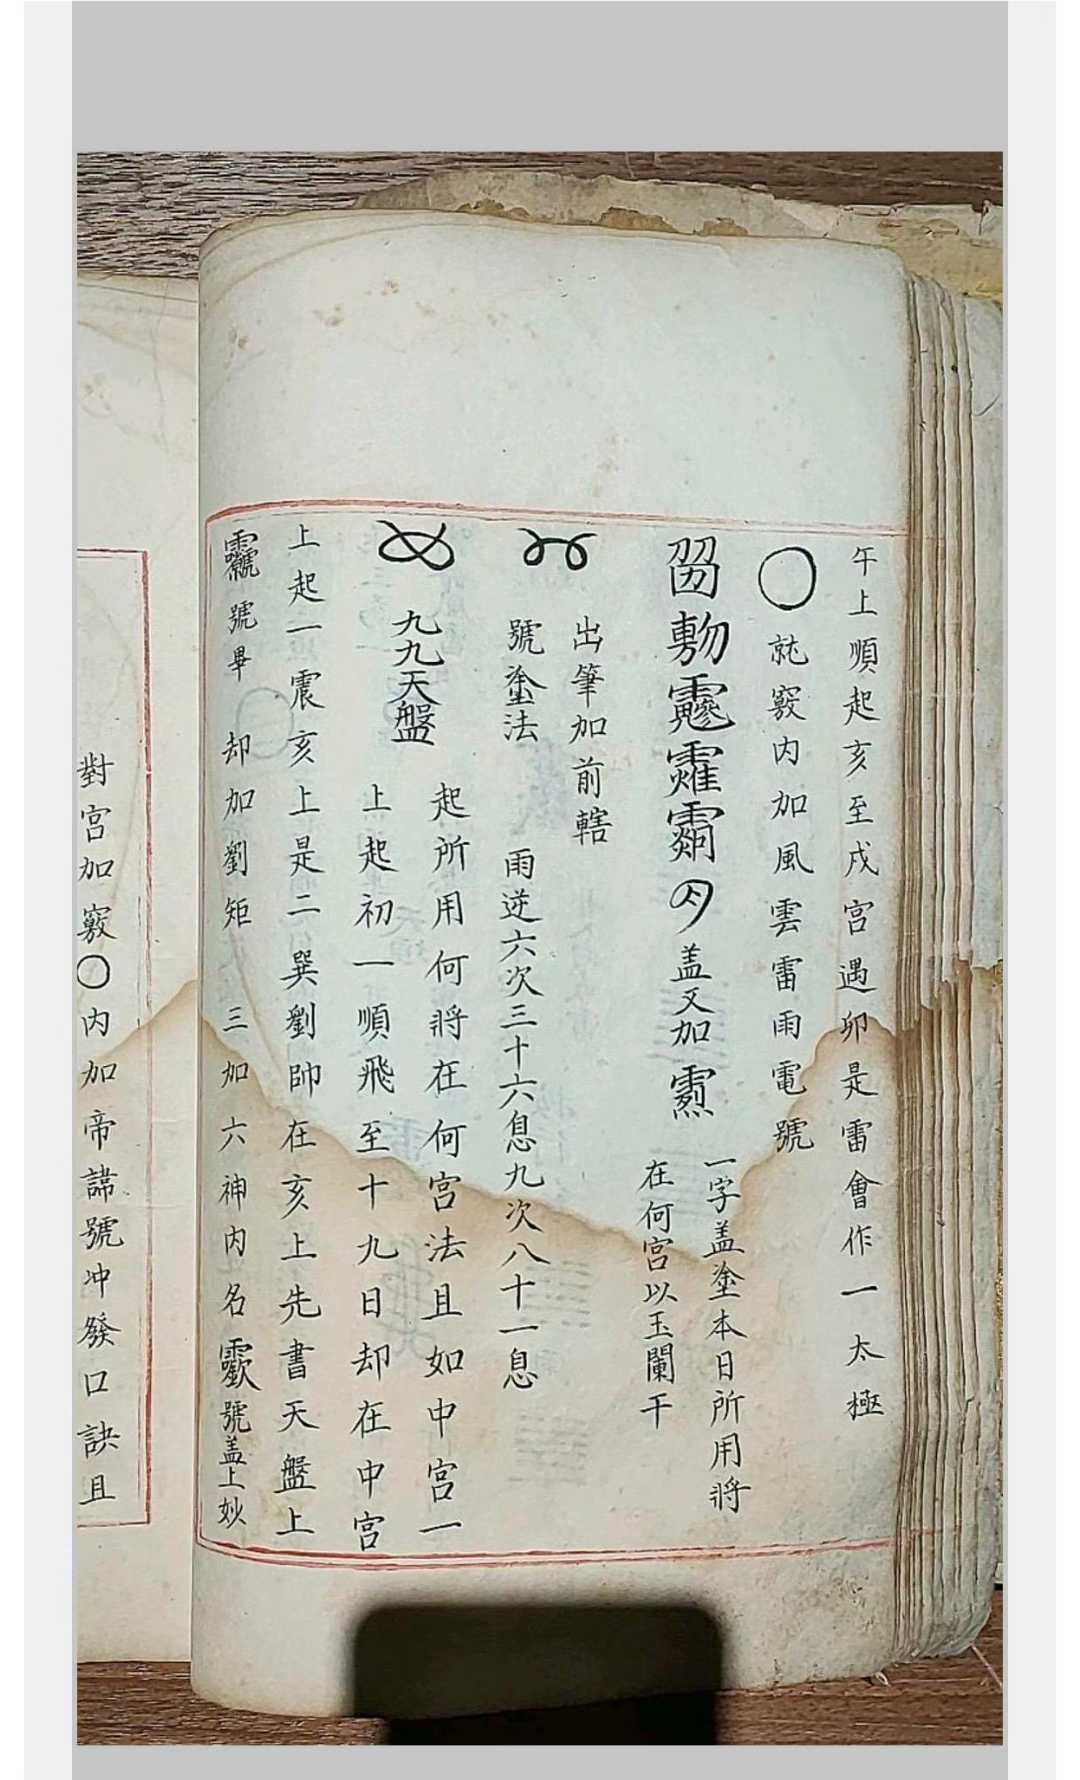 午上順起亥至戍宮遇卯是雷會作一太極
就竅内加風雲雷雨電號
盖又加
一字盖塗本日所用將
在何宮以玉闌干
出筆加前轄
號塗法
雨逆六次三十六息九次八十一息
九九天盤
起所用何將在何宮法且如中宮一
上起初一順飛至十九日却在中宮
上起一震亥上是二巽劉帥在亥上先書天盤上
號畢 却加劉矩 三加六神内名 號盖上妙
對宮加竅〇内加帝諱號冲發口訣且